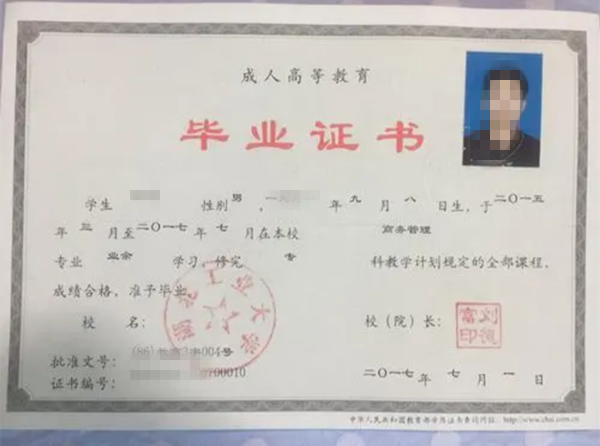 成人高等教育
毕业证书
学生 性别 男， 一 年 九 月 八 日生，于 二〇一五
年 三 月至 二〇一七 年 七 月在本校 商务管理
专业 业余 学习，修完 专 科教学计划规定的全部课程，
成绩合格，准予毕业。
湖北工业大学
校 名： 校（院）长： 刘德富印
批准文号： (86) 教高3字004号
证书编号： 00010
二〇一七年 七 月 一 日
中华人民共和国教育部学历证书查询网址：http://www.chsi.com.cn